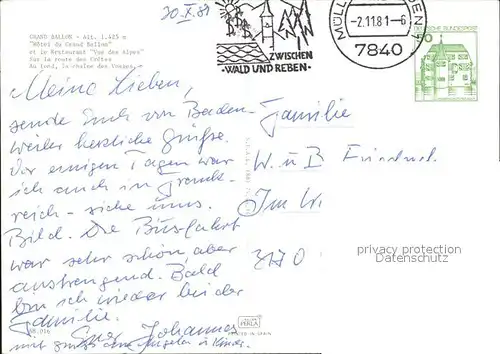 GRAND BALLON - Alt. 1.425 m
"Hôtel du Grand Ballon"
et le Restaurant "Vue des Alpes"
Sur la route des Crêtes
Au fond, la chaîne des Vosges
20.X.81
ZWISCHEN
-WALD UND REBEN-
MÜLL
-2.11.81-6
7840
DEUTSCHE BUNDESPOST
Meine Lieben,
sende Euch von Baden-
weiler herzliche Grüße.
Vor einigen Tagen war
ich auch in Frank-
reich - siehe
Bild. Die Busfahrt
war sehr schön, aber
anstrengend. Bald
bin ich wieder bei der
Familie.
Euer Johannes
Familie
W. u B Friedrich
Im W
3170
privacy protection
Datenschutz
PERLA